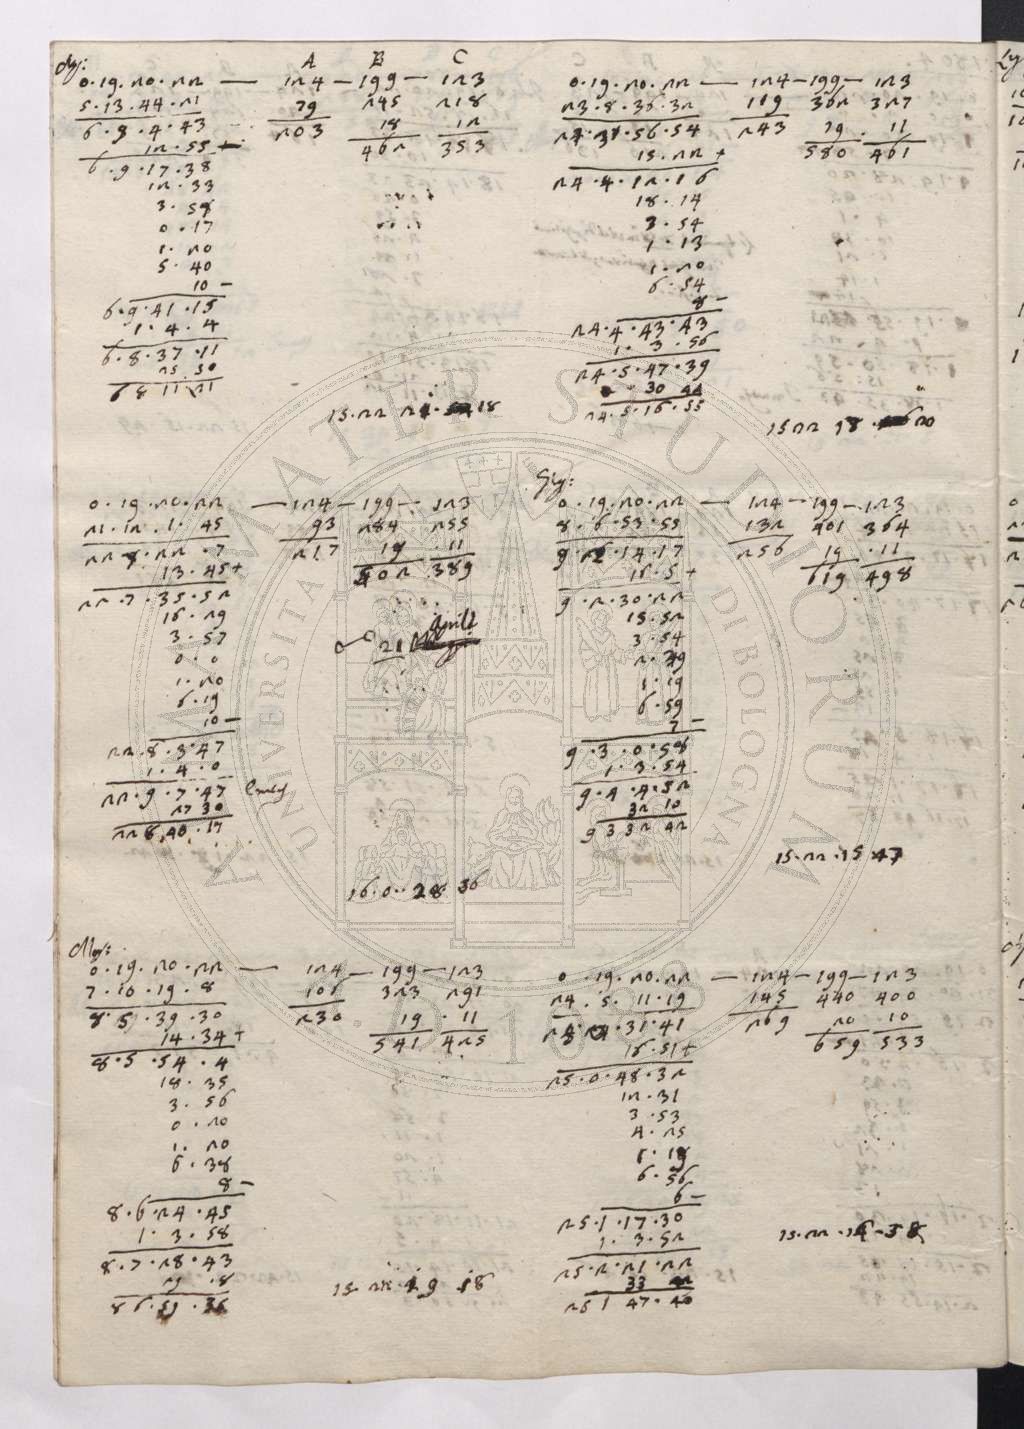 A B C
0.19.20.22 — 124 — 199 — 123
5.13.44.21 79 245 218
6.9.4.43 203 18 12
12.55+ 462 353
6.9.17.38
12.33
3.58
0.17
1.20
5.40
10 −
6.9.41.15
1.4.4
6.8.37.11
25 30
6 8 11 21
15.22 18
0.19.20.22 — 124 — 199 — 123
23.8.36.32 119 362 327
24.56.54 243 19 11
15.22+ 580 461
24.4.12.16
18.14
3.54
1.13
1.20
6.54
8 −
24.4.43.43
1.3.56
24.5.47.39
30 44
24.5.16.55
15 22 18 20
0.19.20.22 — 124 — 199 — 123
21.12.1.45 93 284 255
22.8.22.7 217 19 11
13.45+ 502 389
22.7.35.52
16.29
3.57
0.0
1.20
6.19
10 −
22.8.3.47
1.4.0
22.9.7.47
27 30
22 8 40.17
21 Aprile
16.0.28 36
0.19.20.22 — 124 — 199 — 123
8.6.53.55 132 401 364
9.2.14.17 256 19 11
16.5+ 619 498
9.2.30.22
15.52
3.54
2.49
1.19
6.59
7 −
9.3.0.58
1.3.54
9.4.4.52
32 10
9 3 32 42
15.22.15 47
0.19.20.22 — 124 — 199 — 123
7.10.19.8 101 323 291
8.5.39.30 230 19 11
14.34+ 541 425
8.5.54.4
18.35
3.56
0.20
1.20
6.38
8 −
8.6.24.45
1.3.58
8.7.28.43
8 6.51.36
15.22 19 18
0.19.20.22 — 124 — 199 — 123
24.5.11.19 145 440 400
31.41 269 20 10
16.51+ 659 533
25.0.48.32
12.31
3.53
4.25
1.19
6.56
6 −
25.1.17.30
1.3.52
25.2.21.22
33
25 1 47.40
15.22.16.38
ALMA MATER STUDIORUM
UNIVERSITÀ DI BOLOGNA
A.D. 1088